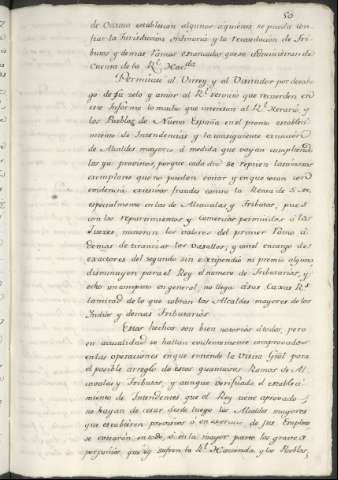 50
de Oaxaca establescan algunos aquienes se pueda con
fiar la Jurisdiccion Ordinaria y la recaudacion de Tri
butos y demas Ramos estancados que se administran de
Cuenta de la Rl. Hacda.
Permitase al Virrey y al Visitador por desaho
go de su zelo y amor al Rl. servicio que recuerden en
este Informe lo mucho que interesan al Rl. Herario, y
los Pueblos de Nueva España en el pronto estableci
miento de Intendencias y la consiguiente extincion
de Alcaldes mayores á medida que vayan cumpliendo
los ya provistos, porque cada dia se repiten lastimosos
exemplares que no pueden evitar y en que tocan con
evidencia excesivos fraudes contra la Renta de S. M.
especialmente en las de Alcavalas y Tributos, pues
con los repartimientos y comercios permitidos á las
Justs. minoran los valores del primer Ramo á
demas de tiranizar los vasallos; y con el encargo de
exactores del segundo sin estipendio ni premio alguno
disminuyen para el Rey el numero de Tributarios; y
hecho un computo en general, no llega á sus Caxas Rs.
la mitad de lo que cobran los Alcaldes mayores de los
Indios y demas Tributarios.
Estos hechos son bien notorios á todos, pero
en la actualidad se hallan evidentemente comprovados
en las operaciones en que entiende la Visita Gral para
el posible arreglo de estos quantiosos Ramos de Al
cavalas y Tributos, y aunque verificado el estableci
miento de Intendentes que el Rey tiene aprovado,
no hayan de cesar desde luego los Alcaldes mayores
que estubieren provistos ó en exercicio de sus Empleos
se evitarán en todo, ó en la mayor parte los graves
perjuicios que oy sufren la Rl. Hacienda y los Pueblos,